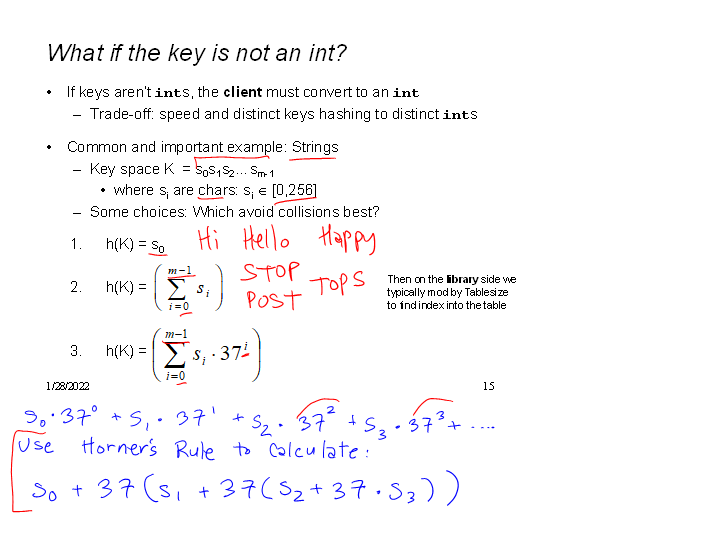 What if the key is not an int?
• If keys aren't ints, the client must convert to an int
– Trade-off: speed and distinct keys hashing to distinct ints
• Common and important example: Strings
– Key space K = s₀s₁s₂…sₘ₋₁
• where sᵢ are chars: sᵢ ∈ [0,256]
– Some choices: Which avoid collisions best?
1. h(K) = s₀ Hi Hello Happy
2. h(K) = (∑_{i=0}^{m−1} sᵢ) STOP POST TOPS
Then on the library side we
typically mod by Tablesize
to find index into the table
3. h(K) = (∑_{i=0}^{m−1} sᵢ · 37ⁱ)
1/28/2022 15
s₀·37⁰ + s₁·37¹ + s₂·37² + s₃·37³ + ....
Use Horner's Rule to Calculate:
s₀ + 37(s₁ + 37(s₂ + 37·s₃))